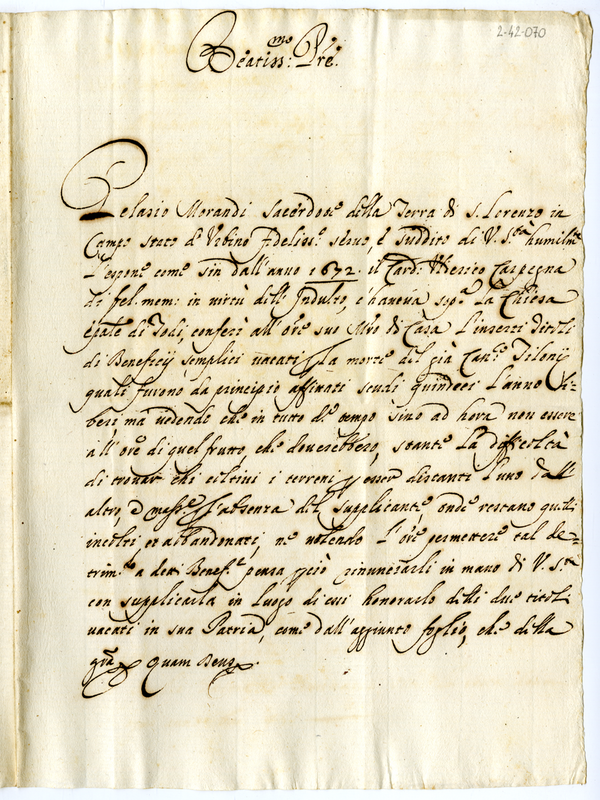 2-42-070
Beatiss:mo Pre:
Pelasio Morandi Sacerdote della Terra di S. Lorenzo in
Campo Stato d'Urbino fideliss.o servo, è suddito di V. S.ta humilm.te
L'espone come sin dall'anno 1672. il Card. Ulderico Carpegna
di fel. mem: in virtù dell'Indulto, c'haveva sop.a La Chiesa
di Todi, conferì all'Ore suo Mro di Casa l'inserti titoli
di Beneficij semplici vacati p La morte del già Can.co
quali furono da principio affittati scudi quindeci l'anno li-
beri ma vedendo che in tutto d.o tempo sino ad hora non essere
all'Ore di quel frutto, che doverebbero, stante La difficoltà
di trovar chi coltivi i terreni p esser distanti l'uno dall'
altro, e mass.e p l'absenza del supplicante onde restano quelli
incolti, et abbandonati, ne volendo l'Ore permettere tal de-
trim.to a detti Benef.i pensa p ciò rinunciarli in mano di V. S.tà
con supplicarla in luogo di cui honorarlo delli due titoli
vacati in sua Patria, come dall'aggiunto foglio, che della
gra Quam Deus